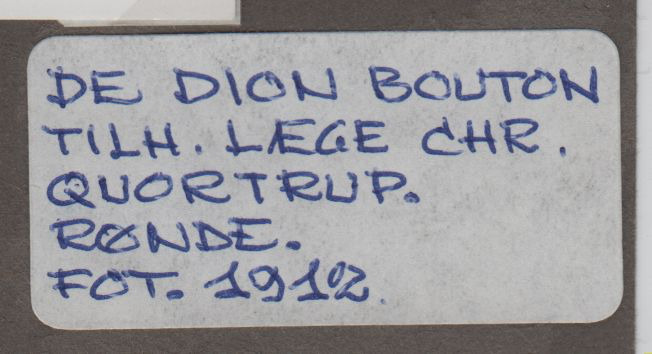 DE DION BOUTON
TILH. LÆGE CHR.
QUORTRUP.
RØNDE.
FOT. 1912.